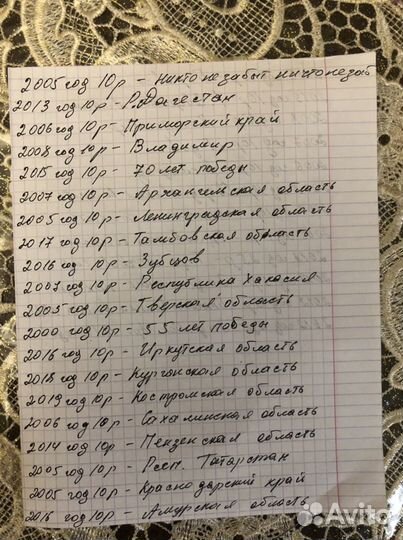 2005 год 10р - никто не забыт ничто незаб
2013 год 10р - Р. Дагестан
2006 год 10р - Приморский край
2008 год 10р - Владимир
2015 год 10р - 70 лет победы
2007 год 10р - Архангельская область
2005 год 10р - Ленинградская область
2017 год 10р - Тамбовская область
2016 год 10р - Зубцов
2007 год 10р - Республика Хакасия
2005 год 10р - Тверская область
2000 год 10р - 55 лет победы
2016 год 10р - Иркутская область
2018 год 10р - Курганская область
2019 год 10р - Костромская область
2006 год 10р - Сахалинская область
2014 год 10р - Пензенская область
2005 год 10р - Респ. Татарстан
2005 год 10р - Краснодарский край
2016 год 10р - Амурская область
Avito